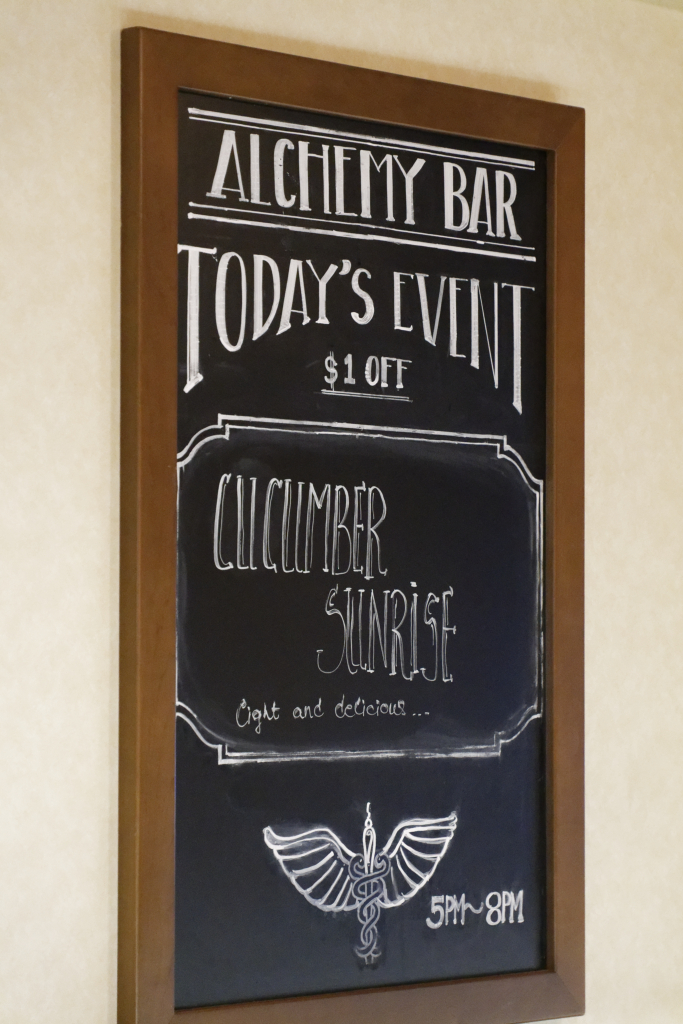 ALCHEMY BAR
TODAY'S EVENT
$1 OFF
CUCUMBER
SUNRISE
Light and delicious...
5PM~8PM